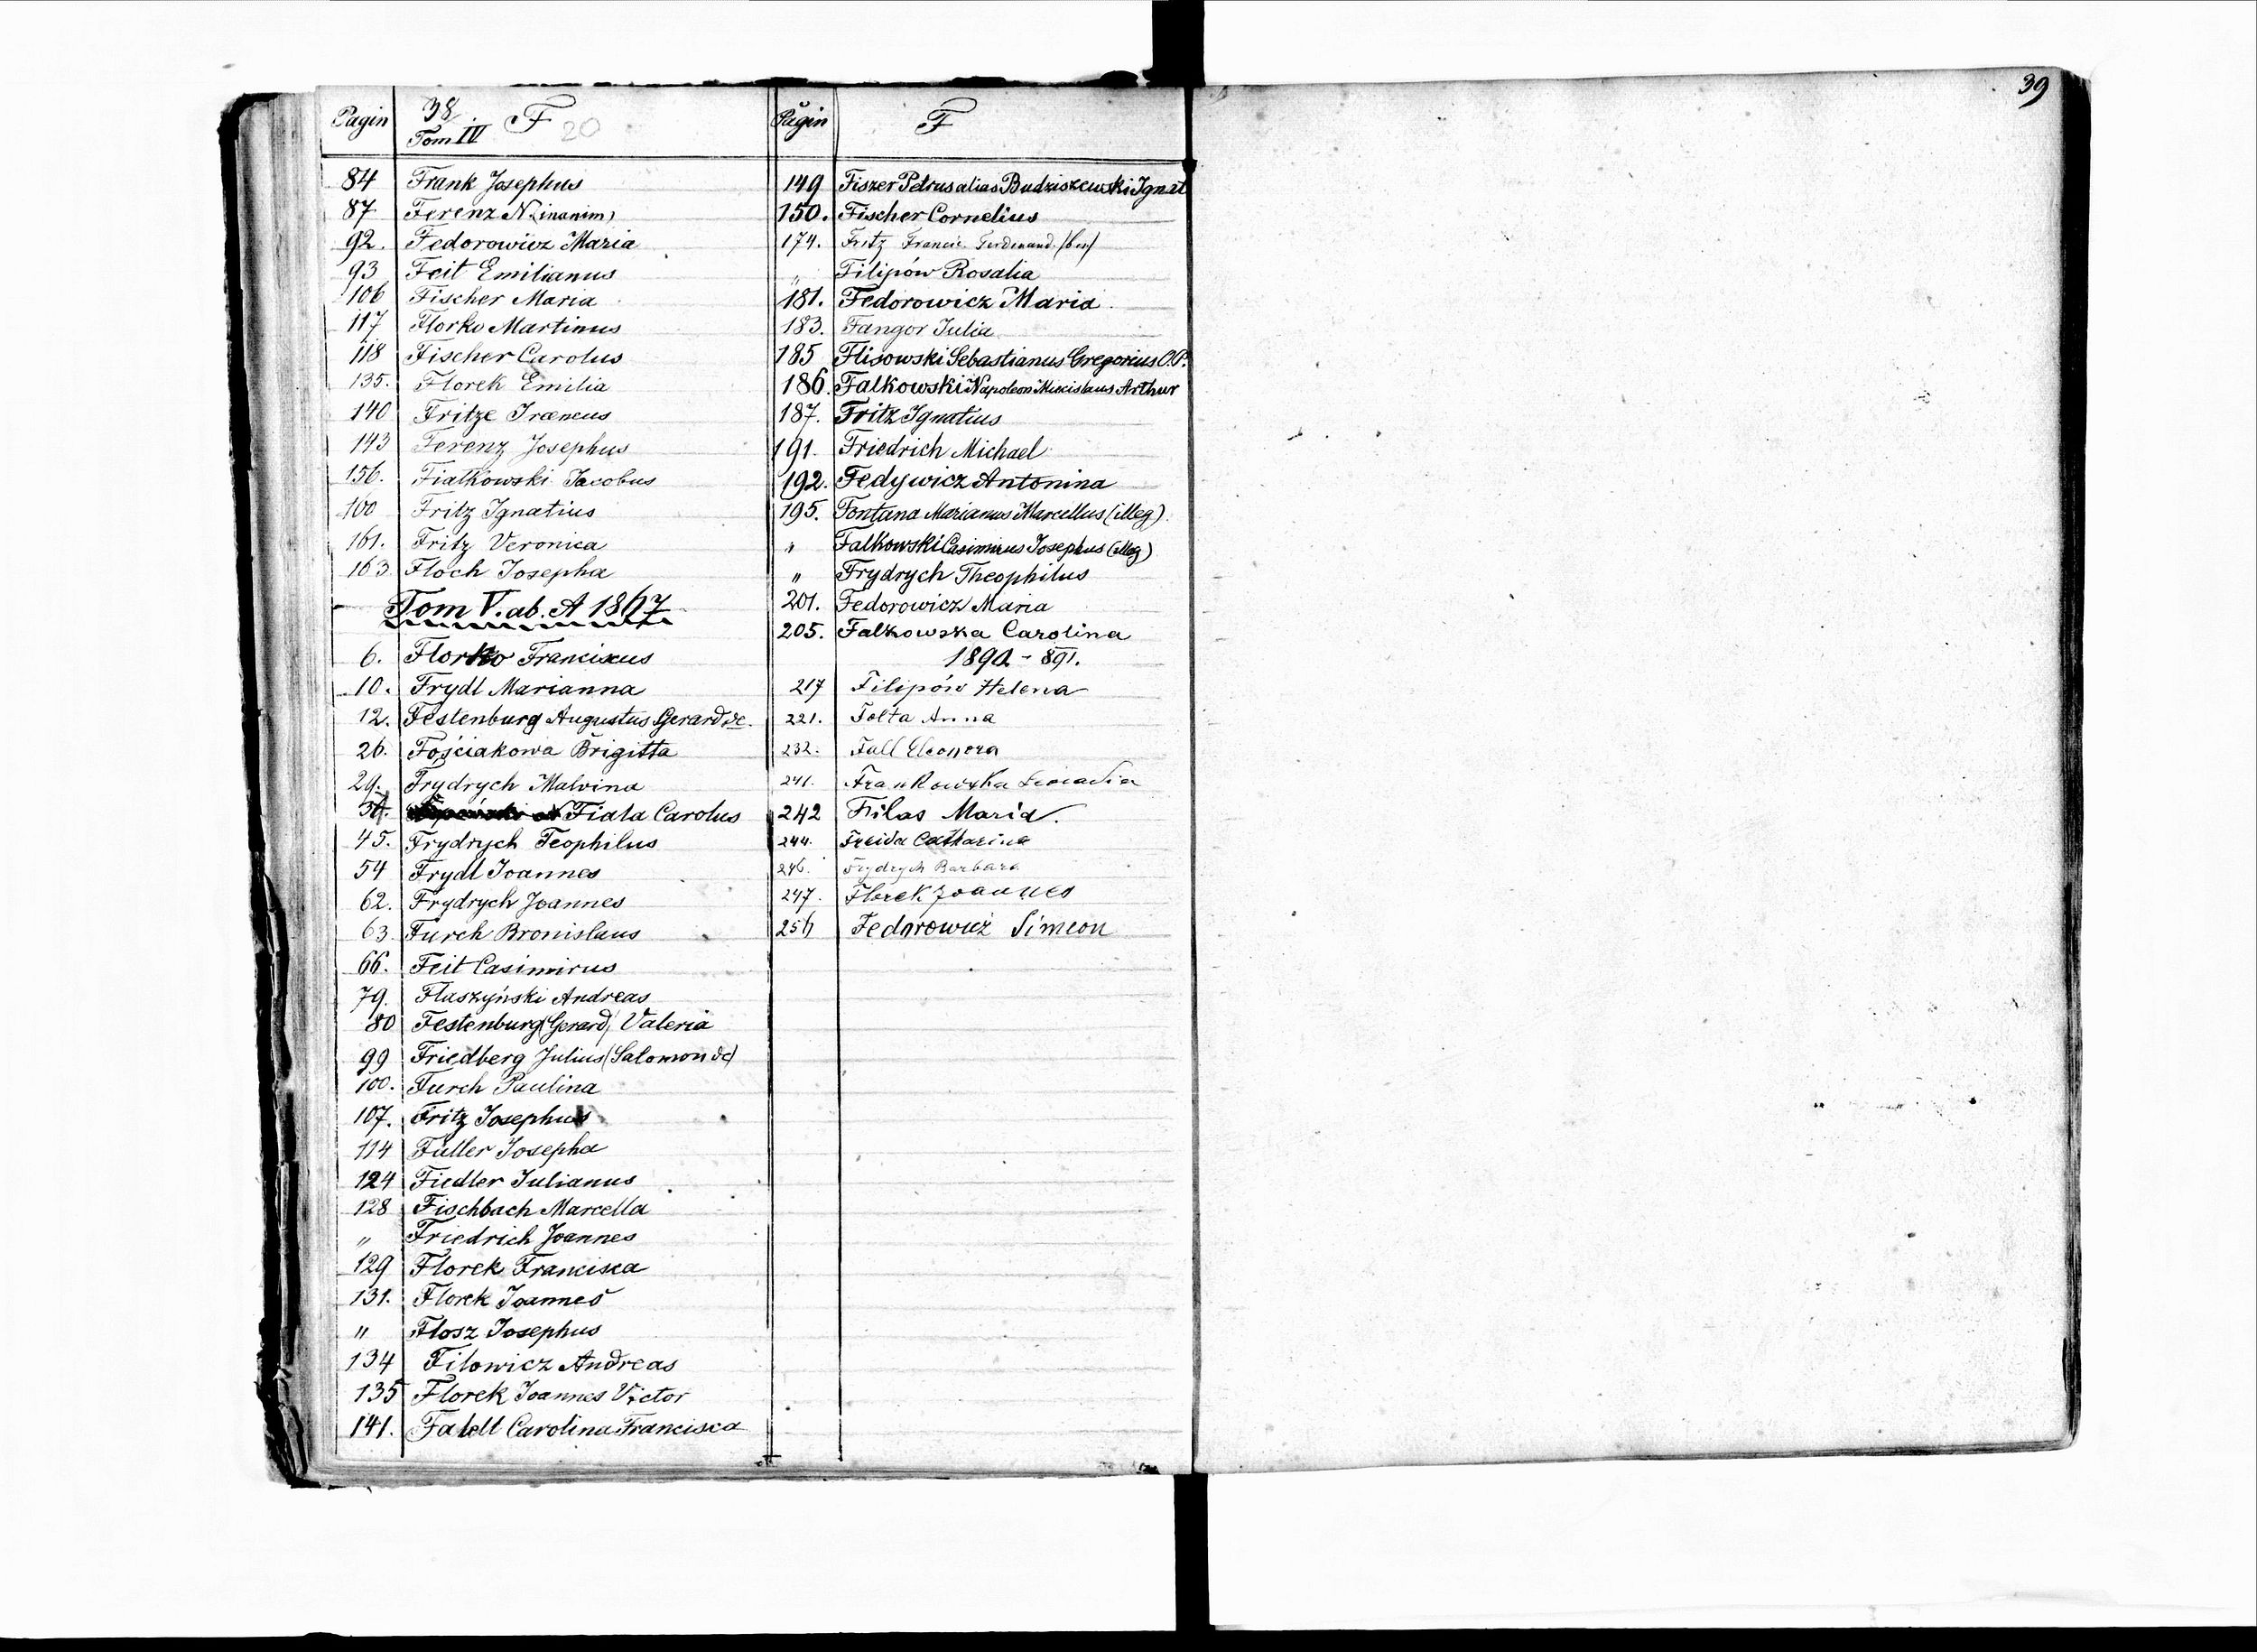 Pagin 38 F 20
Tom IV
84 Frank Josephus
87 Ferenz N (inanim)
92. Fedorowicz Maria
93 Feit Emilianus
106 Fischer Maria
117 Florko Martinus
118 Fischer Carolus
135. Florek Emilia
140 Fritze Iraeneus
143 Ferenz Josephus
156. Fiałkowski Jacobus
160 Fritz Ignatius
161. Fritz Veronica
163 Floch Josepha
Tom V. ab. A 1867
6. Florko Franciscus
10. Frydl Marianna
12. Festenburg Augustus Gerard de.
26. Fośćiakowa Brigitta
29. Frydrych Malvina
Fiala Carolus
45. Frydrych Teophilus
54 Frydl Joannes
62. Frydrych Joannes
63. Furch Bronislaus
66. Feit Casimirus
79. Flaszyński Andreas
80 Festenburg (Gerard) Valeria
99 Friedberg Julius (Salomon de)
100. Furch Paulina
107. Fritz Josephus
114 Füller Josepha
124 Fiedler Julianus
128 Fischbach Marcella
" Friedrich Joannes
129 Florek Francisca
131. Florek Joannes
" Flosz Josephus
134 Filowicz Andreas
135 Florek Joannes Victor
141. Carolina Francisca
Pagin F
149 Fiszer Petrus alias Budziszewski Ignat
150. Fischer Cornelius
174. Fritz Francis. Ferdinand.
" Filipów Rosalia
181. Fedorowicz Maria
183. Fangor Julia
185 Flisowski Sebastianus Gregorius O.P.
186. Falkowski Napoleon Miecislaus Arthur
187. Fritz Ignatius
191. Friedrich Michael
192. Fedywicz Antonina
195. Fontana Marianus Marcellus (illeg)
" Falkowski Casimirus Josephus (illeg)
" Frydrych Theophilus
201. Fedorowicz Maria
205. Falkowska Carolina
1890 - 891.
217 Filipów Helena
221. Folta Anna
232. Fall Eleonora
241. Frankowska Leocadia
242 Filas Maria.
244. Freida Catharina
246. Frydrych Barbara
247. Florek Joannes
256 Fedorowicz Simeon
39